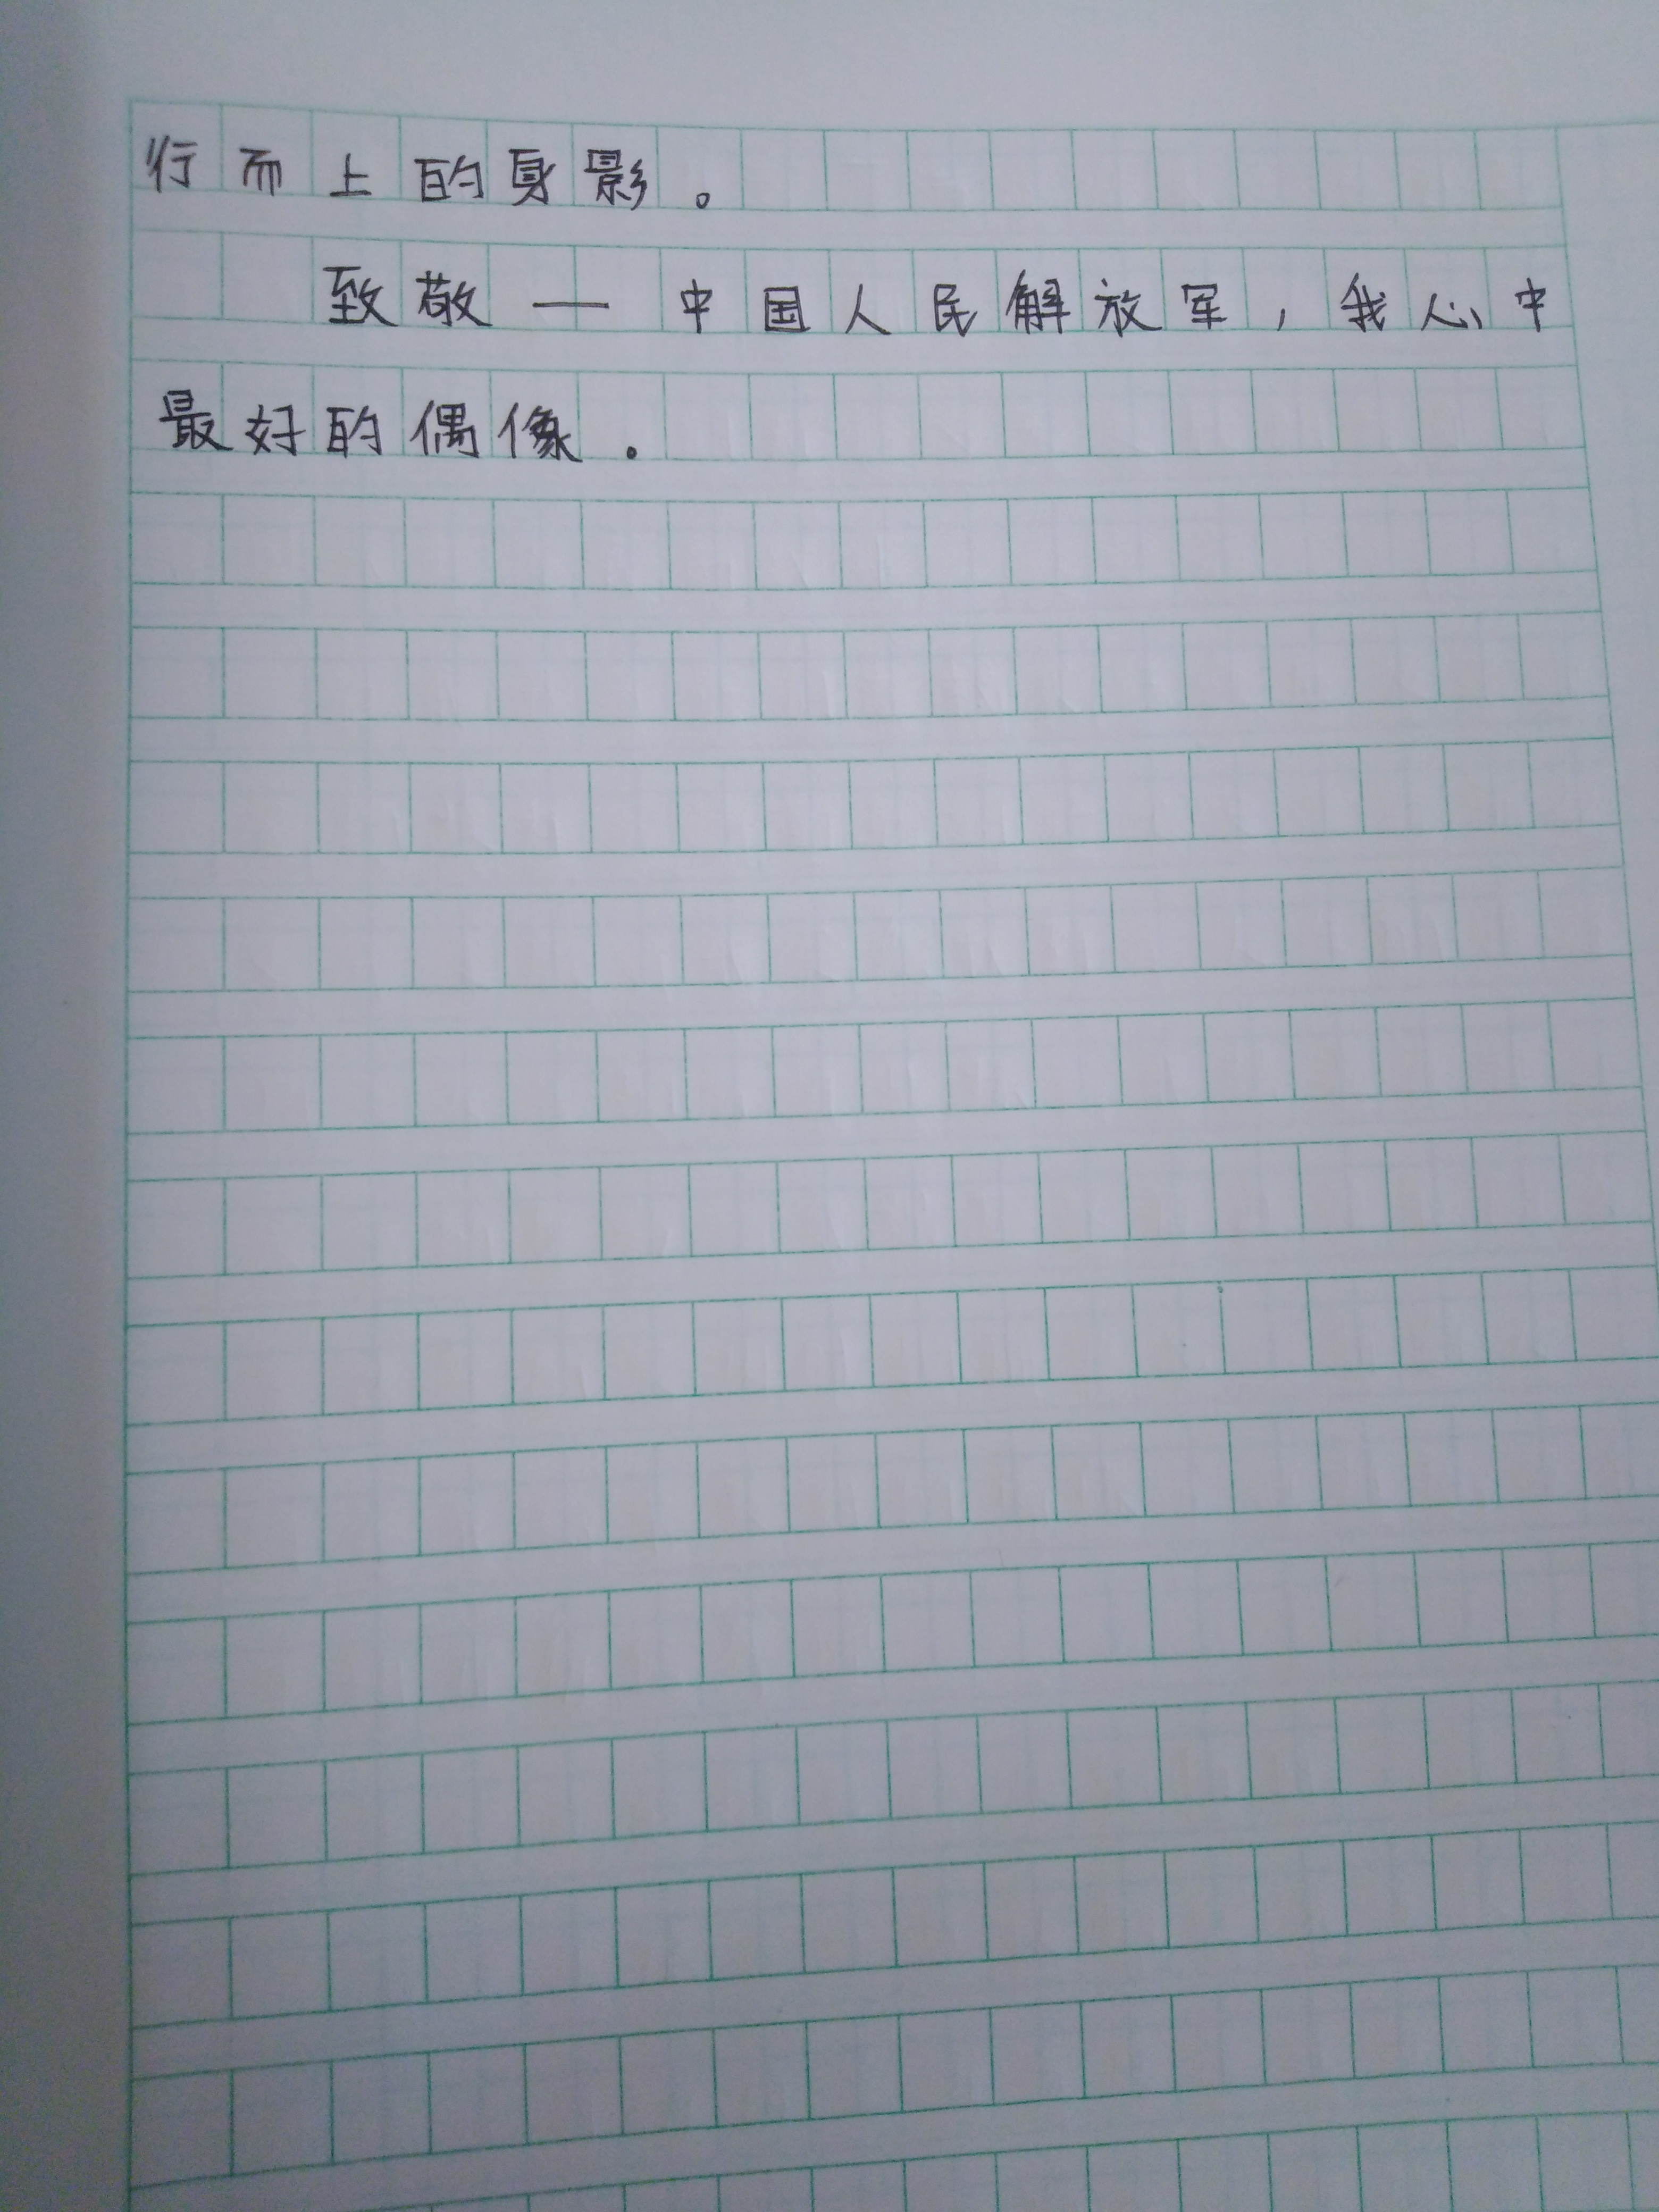 行而上的身影。
致敬—中国人民解放军，我心中
最好的偶像.